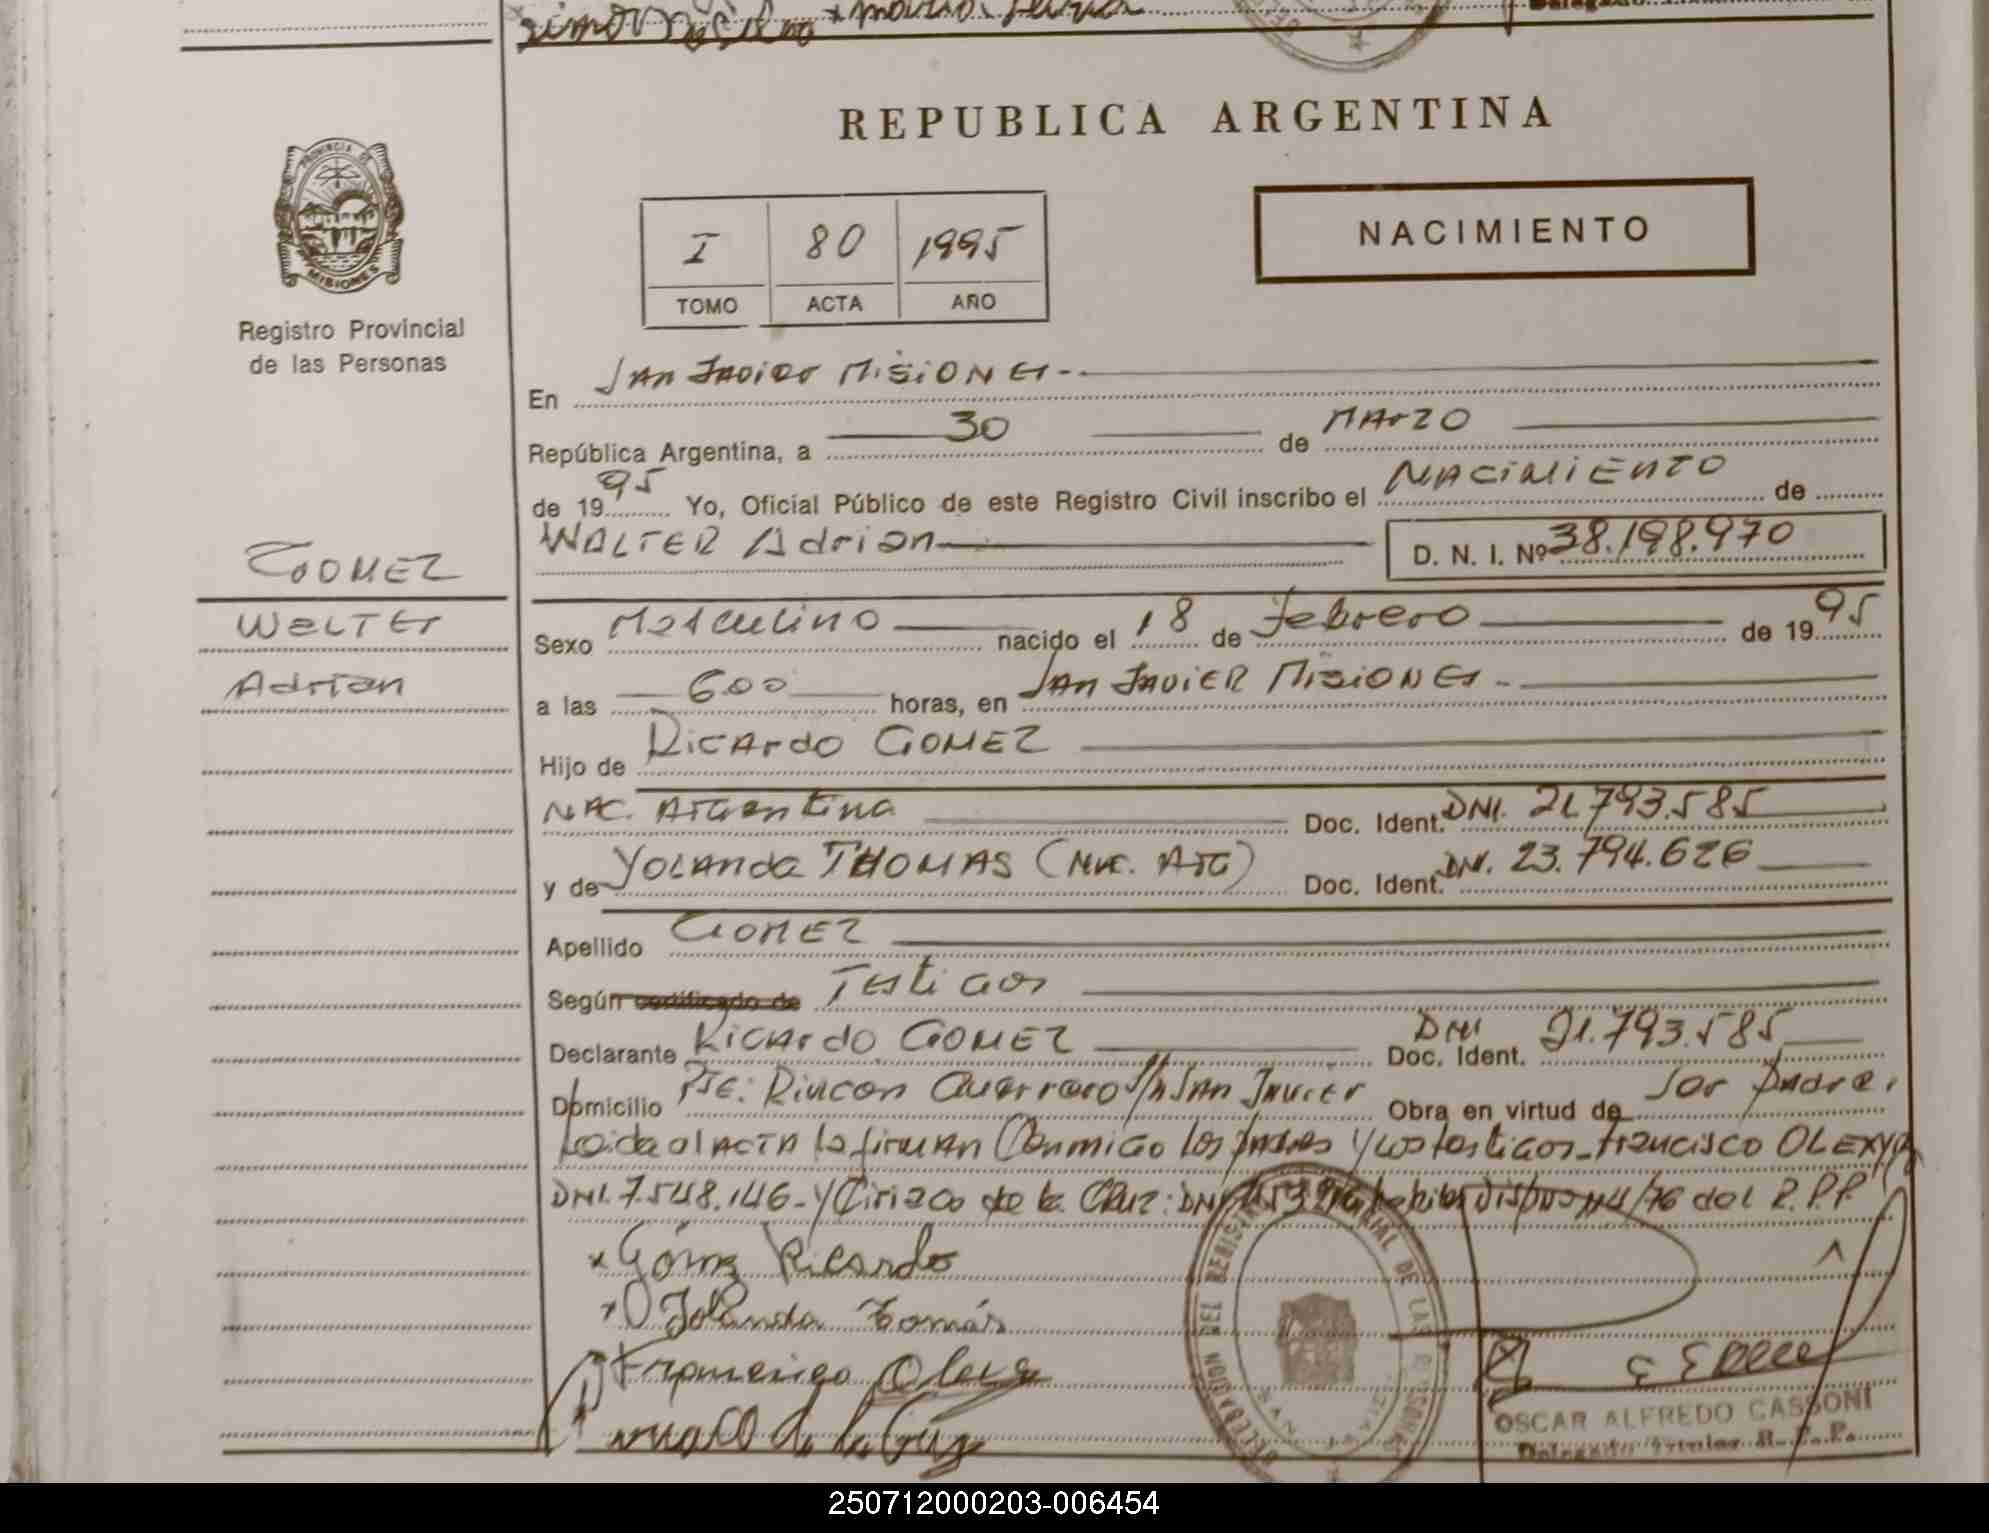 REPUBLICA ARGENTINA
PROVINCIA DE
MISIONES
Registro Provincial
de las Personas
I 80 1995
TOMO ACTA AÑO
NACIMIENTO
En San Javier Misiones.-
República Argentina, a 30 de Marzo
de 1995 Yo, Oficial Público de este Registro Civil inscribo el NACIMIENTO de
WALTER Adrian D. N. I. Nº 38.198.970
GOMEZ
Walter
Adrian
Sexo Masculino nacido el 18 de Febrero de 1995
a las 600 horas, en San Javier Misiones.-
Hijo de Ricardo GOMEZ
Nac. Argentina Doc. Ident. DNI. 21.793.585
y de Yolanda THOMAS (Nac. Arg) Doc. Ident. DNI. 23.794.626
Apellido GOMEZ
Según certificado de Testigos
Declarante Ricardo GOMEZ Doc. Ident. DNI 21.793.585
Domicilio Pje: Rincon Guerrero S/n San Javier Obra en virtud de Ser padre.
Leida el ACTA la firman Conmigo los padres y los testigos - Francisco
DNI. 7.548.146 - y Ciriaco de la Cruz: DNI 14/76 del R.P.P.
Gómez Ricardo
Yolanda Tomás
Francisco
de la Cruz
DELEGACION DEL REGISTRO PROVINCIAL DE LAS PERSONAS
SAN JAVIER
OSCAR ALFREDO CASSONI
Delegado Titular R. P. P.
250712000203-006454